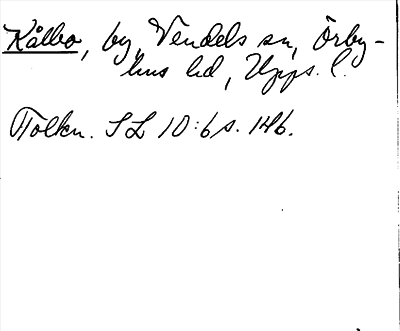 Kålbo, by, Vendels sn, Örby-
hus hd, Upps. l.
Tolkn. SL 10:6 s. 146.